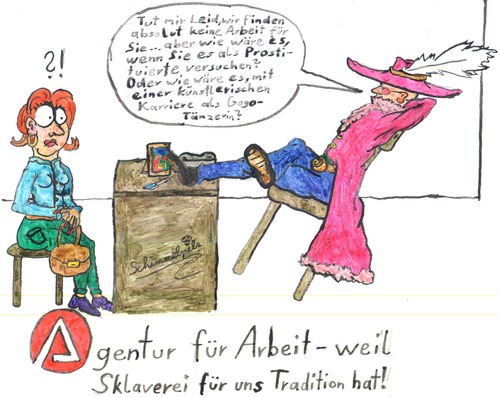 Tut mir Leid, wir finden
absolut keine Arbeit für
Sie... aber wie wäre es,
wenn Sie es als Prosti-
tuierte versuchen?
Oder wie wäre es, mit
einer künstlerischen
Karriere als Gogo-
Tänzerin?
?!
Schimmelpelz
Agentur für Arbeit - weil
Sklaverei für uns Tradition hat!